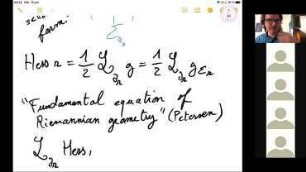 form:
Hess r = 1/2 ℒ_∂r g = 1/2 ℒ_∂r g_εr
"Fundamental equation of
Riemannian geometry" (Petersen)
ℒ_∂r Hess,